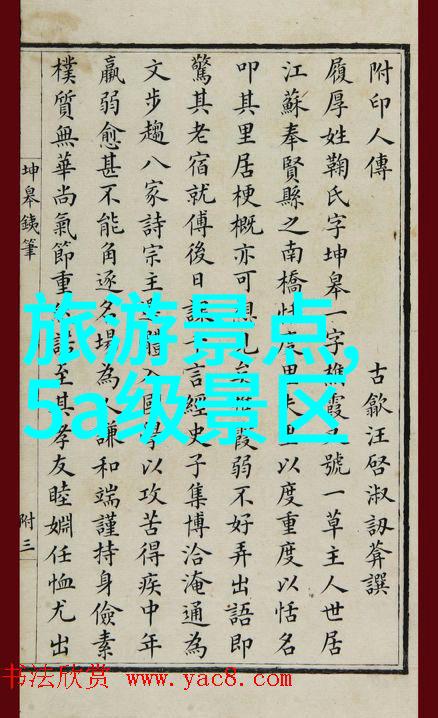 附印人傳
古歙汪啓淑訒葊譔
履厚姓鞠氏字坤皋一字樵霞號一草主人世居
江蘇奉賢縣之南橋里以度重度以恬名
叩其里居梗概亦可霞弱不好弄出語即
驚其老宿就傅後日言經史子集博洽淹通為
文步趨八家詩宗主國學以攻苦得疾中年
羸弱愈甚不能角逐名場為人謙和端謹持身儉素
樸質無華尚氣節重至其孝友睦婣任恤尤出
坤皋銕筆
附三
旅游景点,
5a级景区
书法欣赏 www.yac8.com